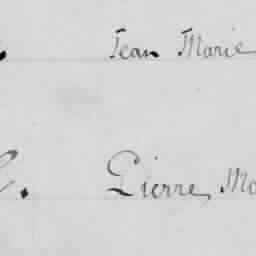 Jean Marie
Pierre, Ma